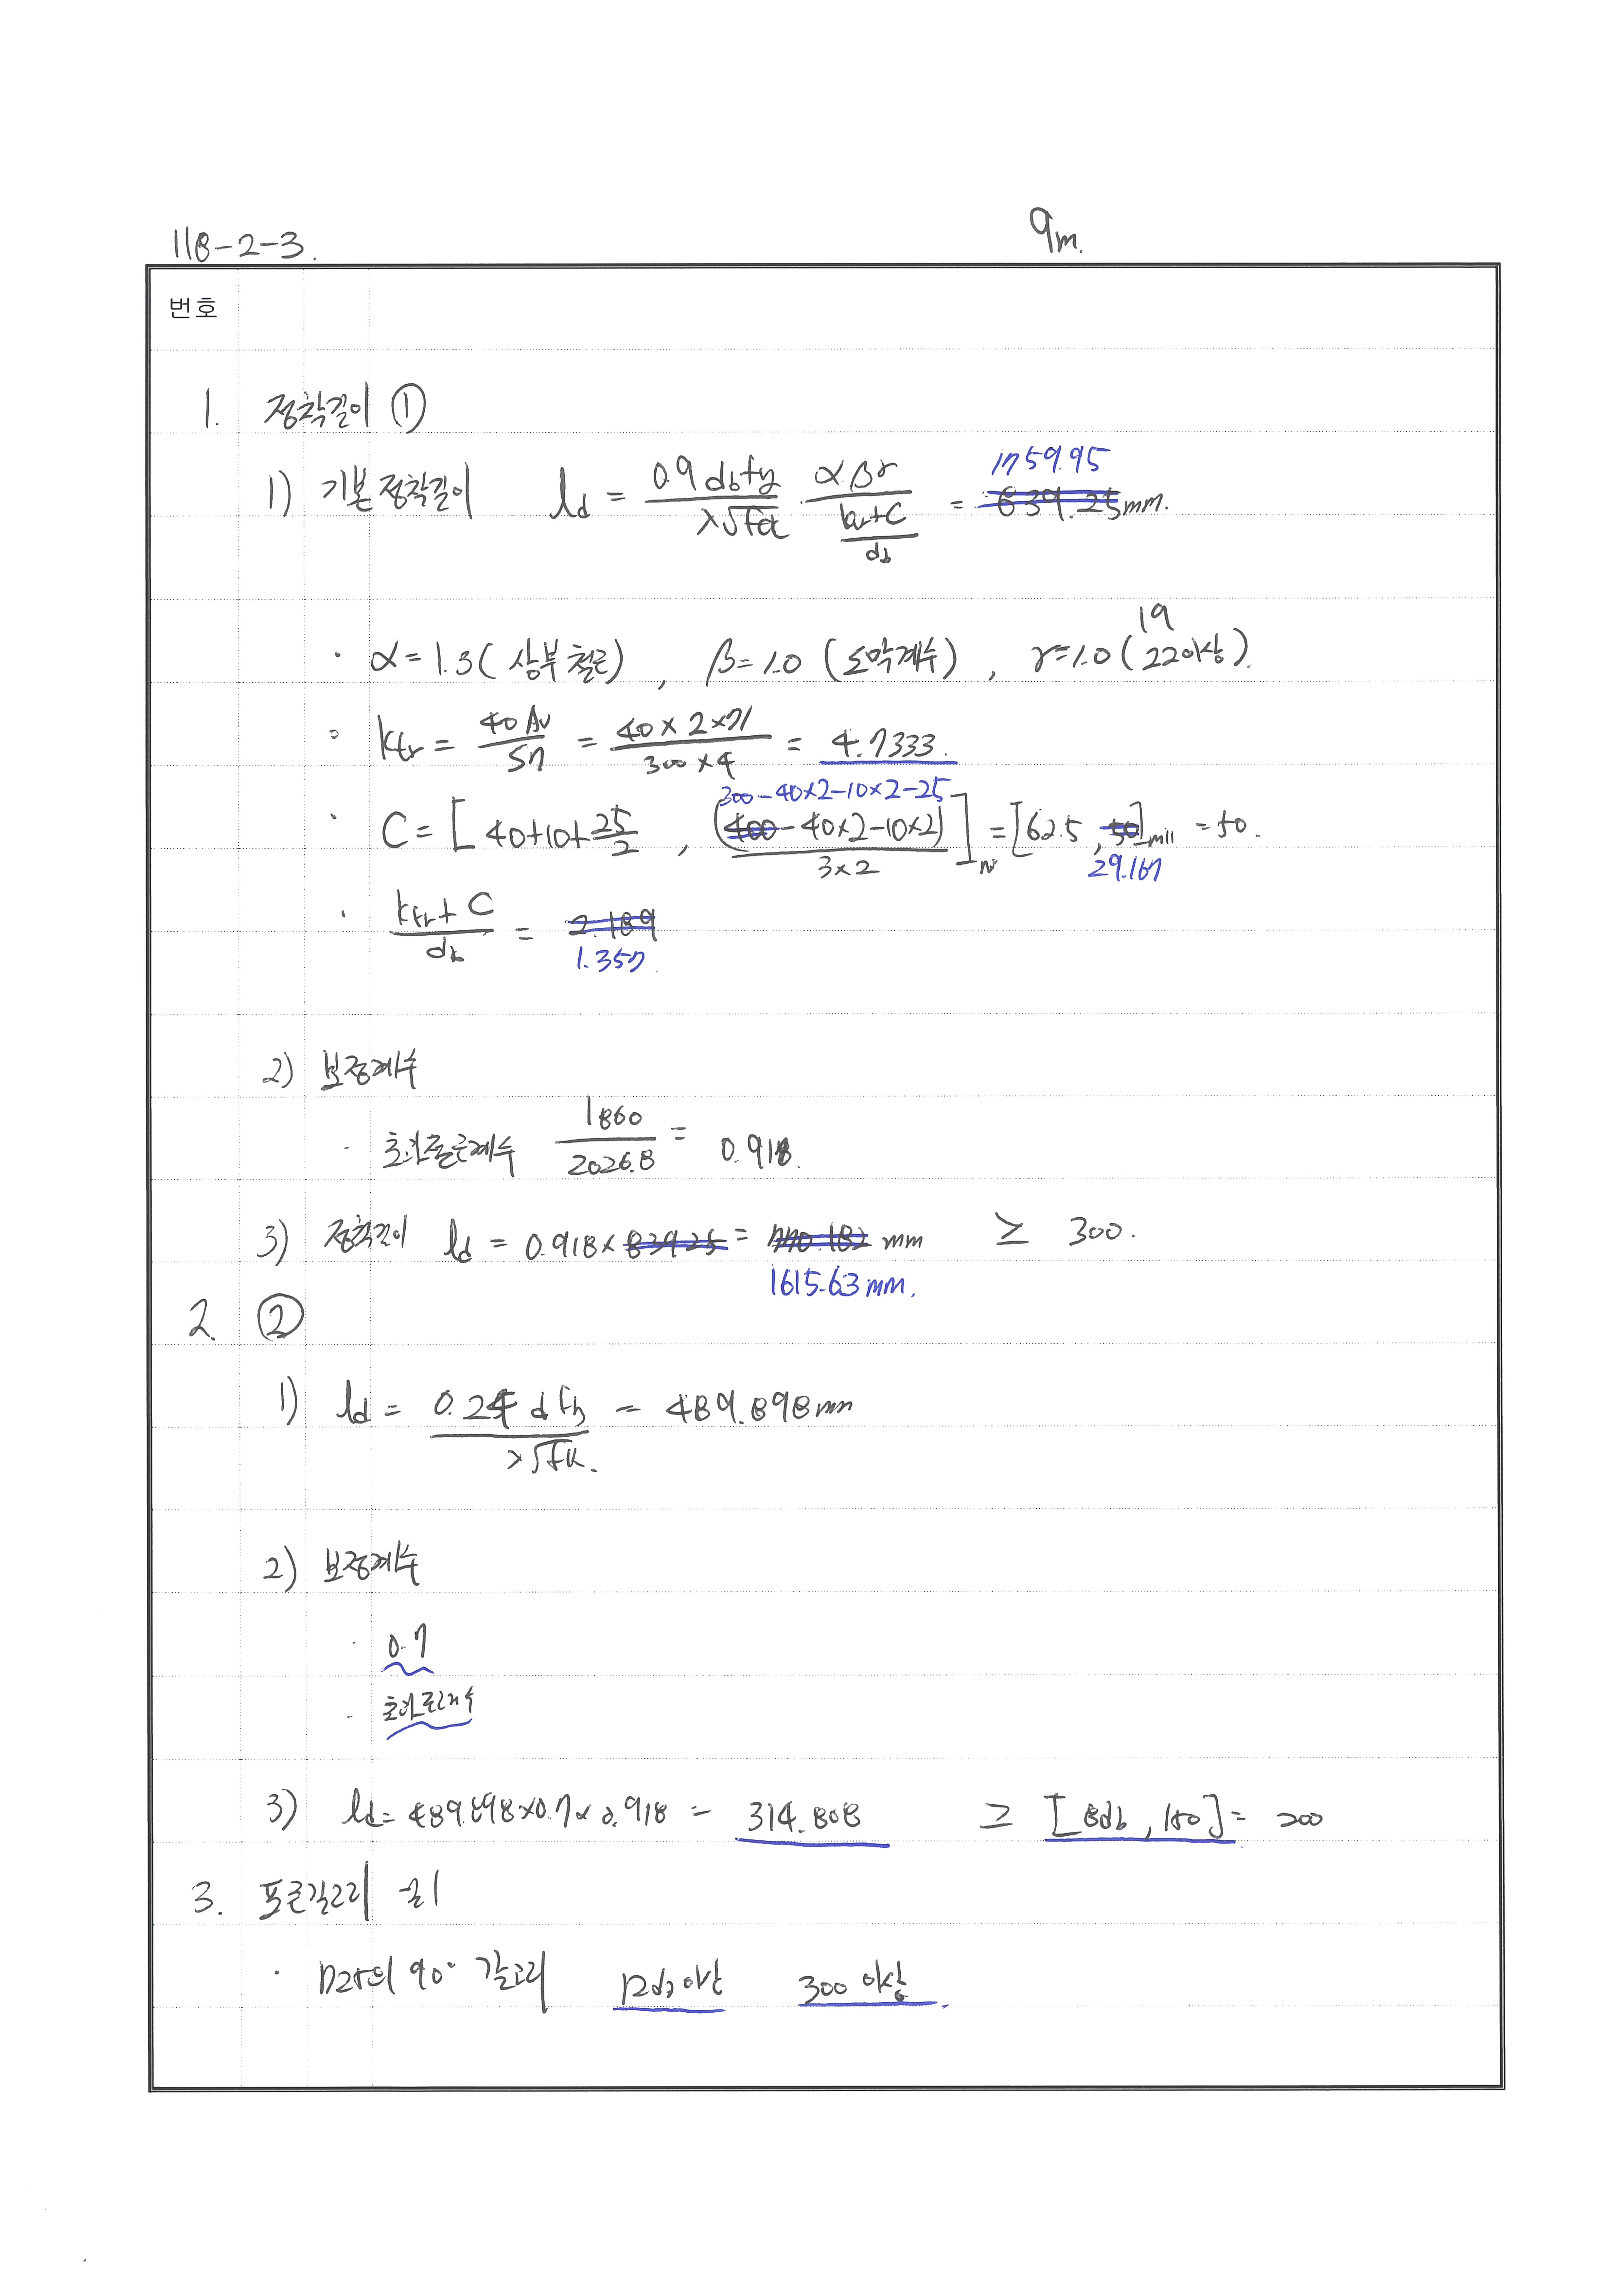 118-2-3.
9m.
번호
1. 정착길이 ①
1) 기본정착길이 ld = 0.9 db fy / λ√fck · αβγ / ((ktr+C)/db) = 639.25 mm.
1759.95
· α = 1.3 (상부철근) , β = 1.0 (도막계수) , γ = 1.0 (22이상).
19
· ktr = 40Av / Sn = 40×2×71 / 300×4 = 4.7333.
300-40×2-10×2-25
· C = [ 40+10+25/2 , (400-40×2-10×2) / 3×2 ] = [62.5 , 50]min = 50.
29.167
· (ktr+C) / db = 2.189
1.357
2) 보정계수
· 초과철근계수 1860 / 2026.8 = 0.918.
3) 정착길이 ld = 0.918 × 839.25 = 770.182 mm ≥ 300.
1615.63 mm.
2. ②
1) ld = 0.24 d fy / λ√fck. = 489.898 mm
2) 보정계수
· 0.7
· 초과철근계수
3) ld = 489.898×0.7×0.918 = 314.808 ≥ [8db, 150] = 200
3. 표준갈고리
· D25의 90° 갈고리 12db 이상 300 이상.